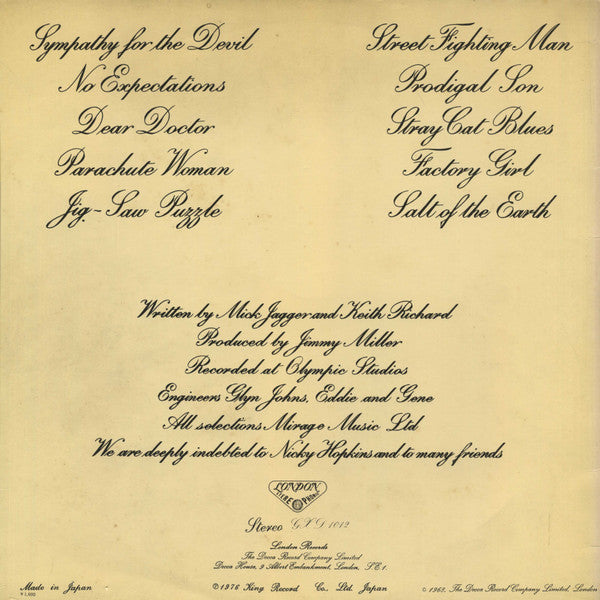 Sympathy for the Devil
No Expectations
Dear Doctor
Parachute Woman
Jig-Saw Puzzle
Street Fighting Man
Prodigal Son
Stray Cat Blues
Factory Girl
Salt of the Earth
Written by Mick Jagger and Keith Richard
Produced by Jimmy Miller
Recorded at Olympic Studios
Engineers Glyn Johns, Eddie and Gene
All selections Mirage Music Ltd
We are deeply indebted to Nicky Hopkins and to many friends
LONDON
Stereo GXD 1012
London Records
The Decca Record Company Limited
Decca House, 9 Albert Embankment, London, S.E.1.
Made in Japan
℗ 1976 King Record Co., Ltd. Japan
© 1968, The Decca Record Company Limited, London